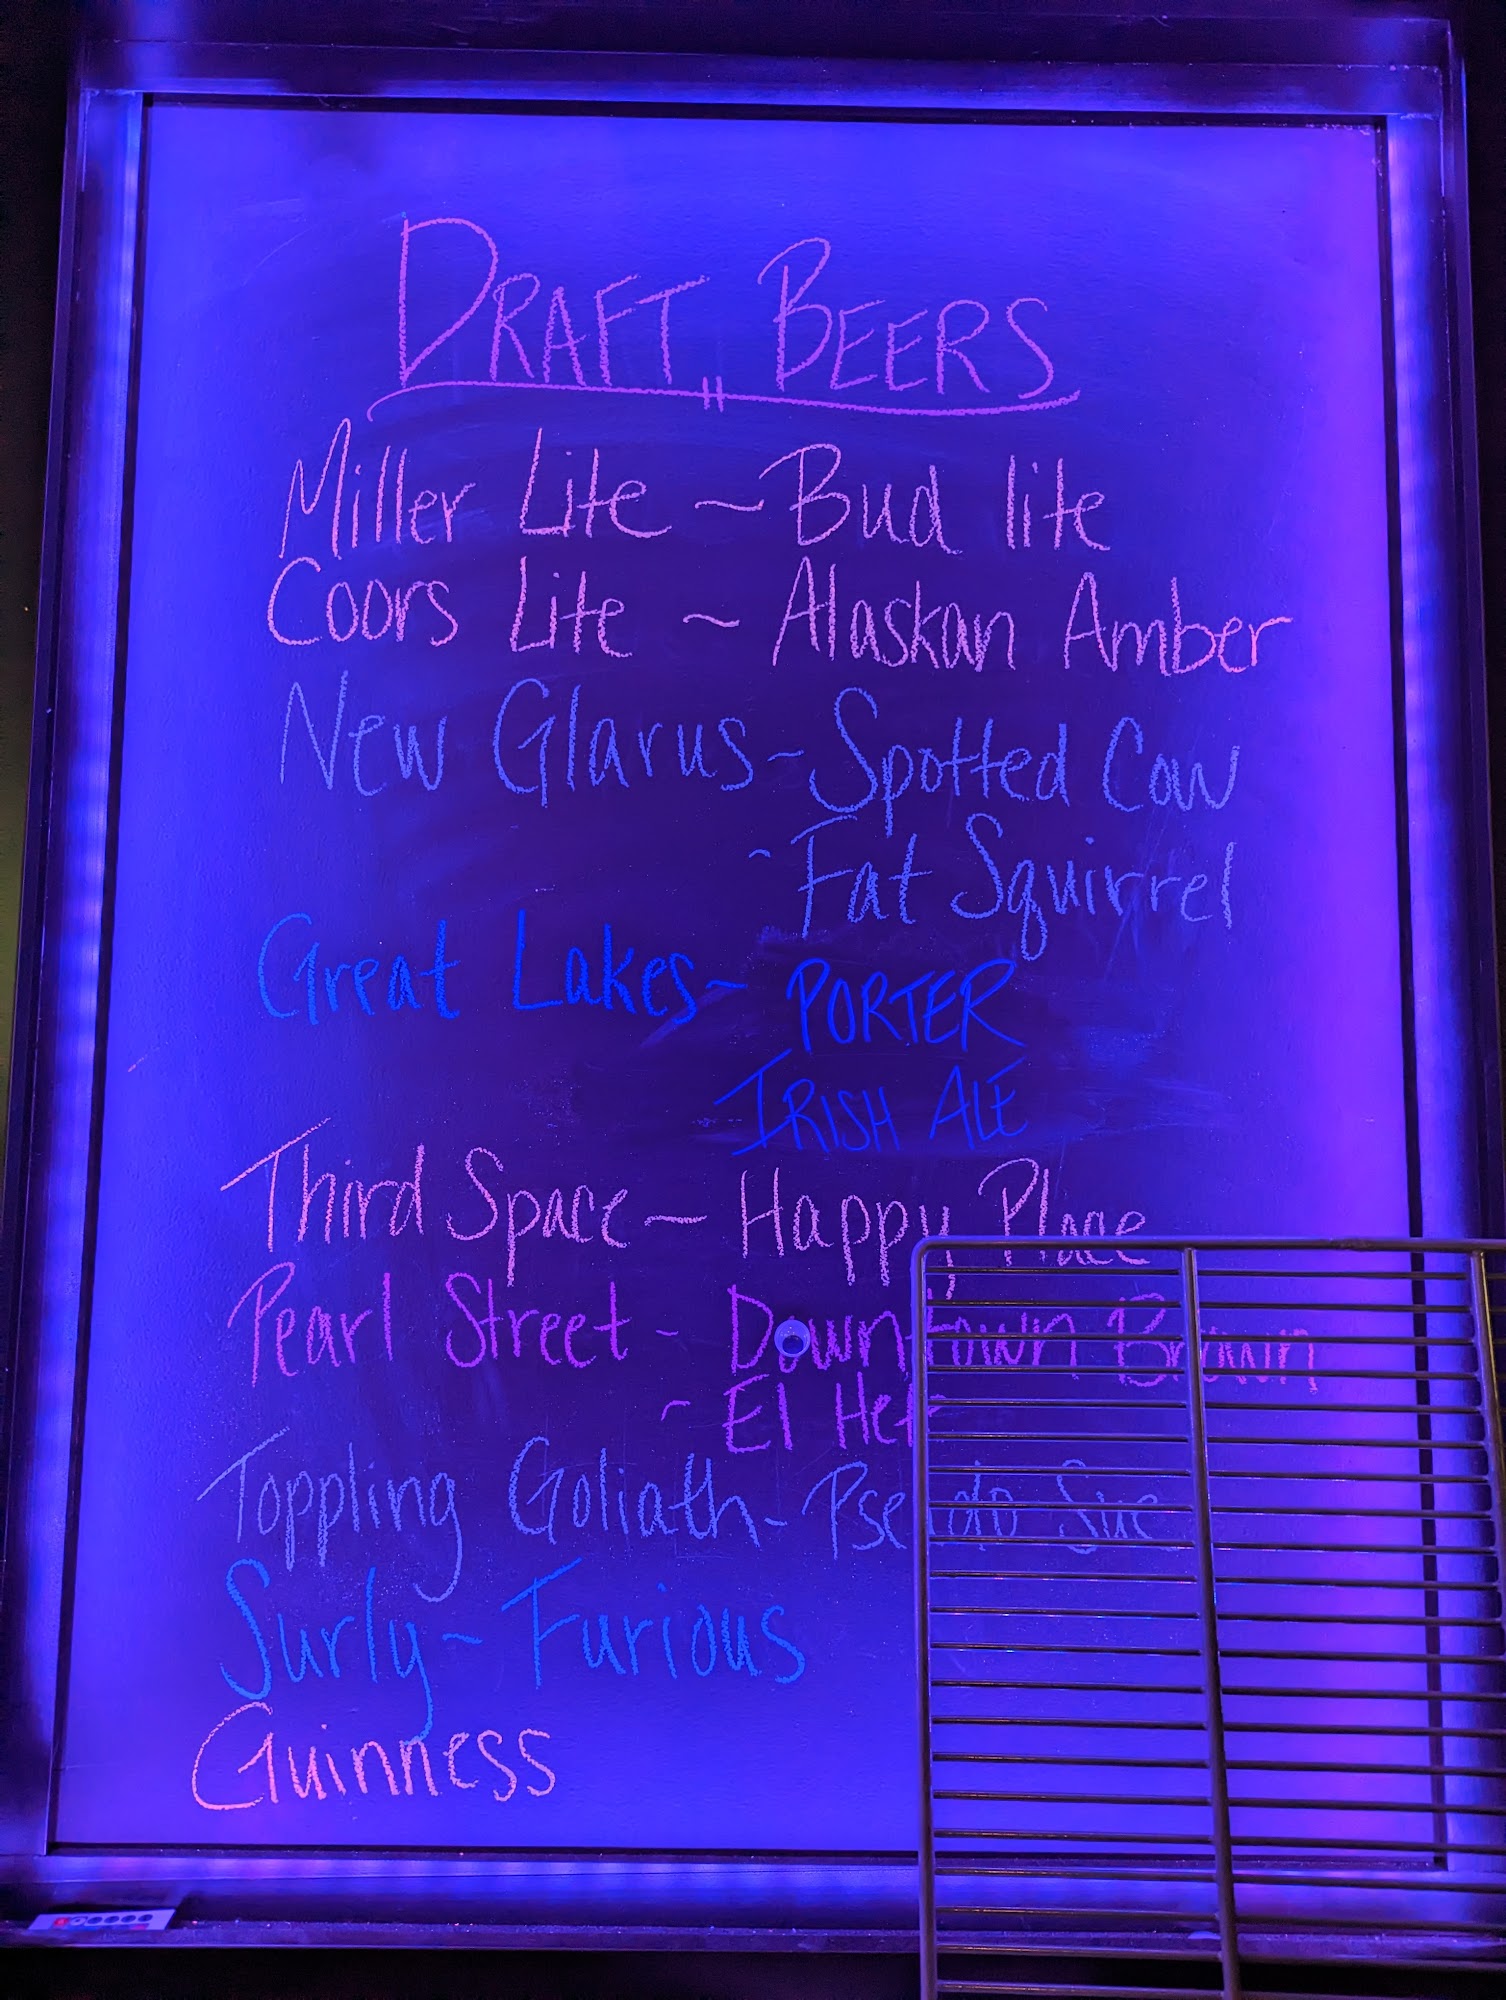 DRAFT BEERS
Miller Lite ~ Bud lite
Coors Lite ~ Alaskan Amber
New Glarus ~ Spotted Cow
~ Fat Squirrel
Great Lakes ~ PORTER
IRISH ALE
Third Space ~ Happy Place
Pearl Street - Downtown Brown
~ El Hefe
Toppling Goliath - Pseudo Sue
Surly ~ Furious
Guinness